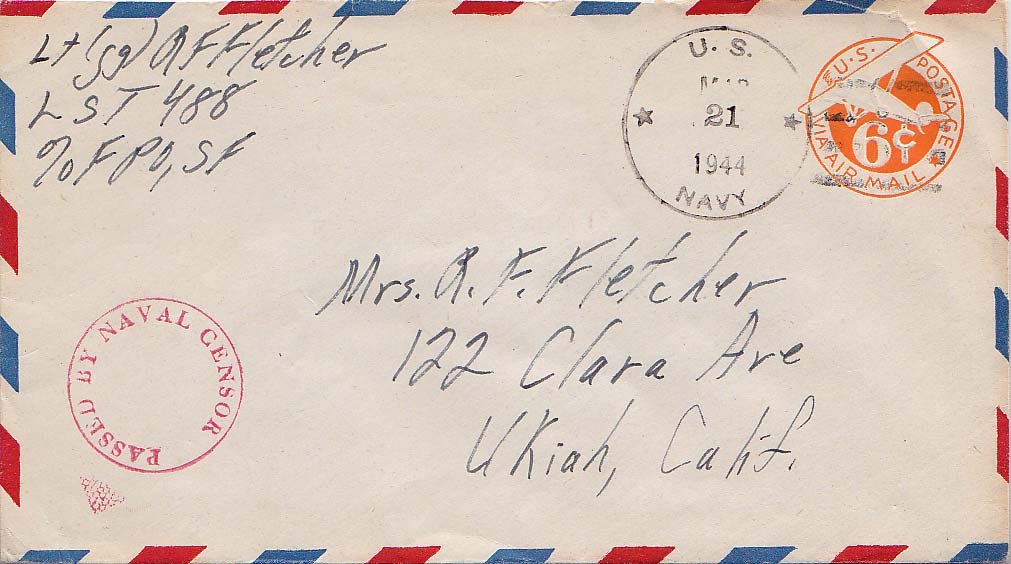 Lt (jg) R F Fletcher
LST 488
% FPO, SF
U. S.
MAR
21
1944
NAVY
U.S. POSTAGE
VIA AIR MAIL
6¢
Mrs. R. F. Fletcher
122 Clara Ave
Ukiah, Calif.
PASSED BY NAVAL CENSOR